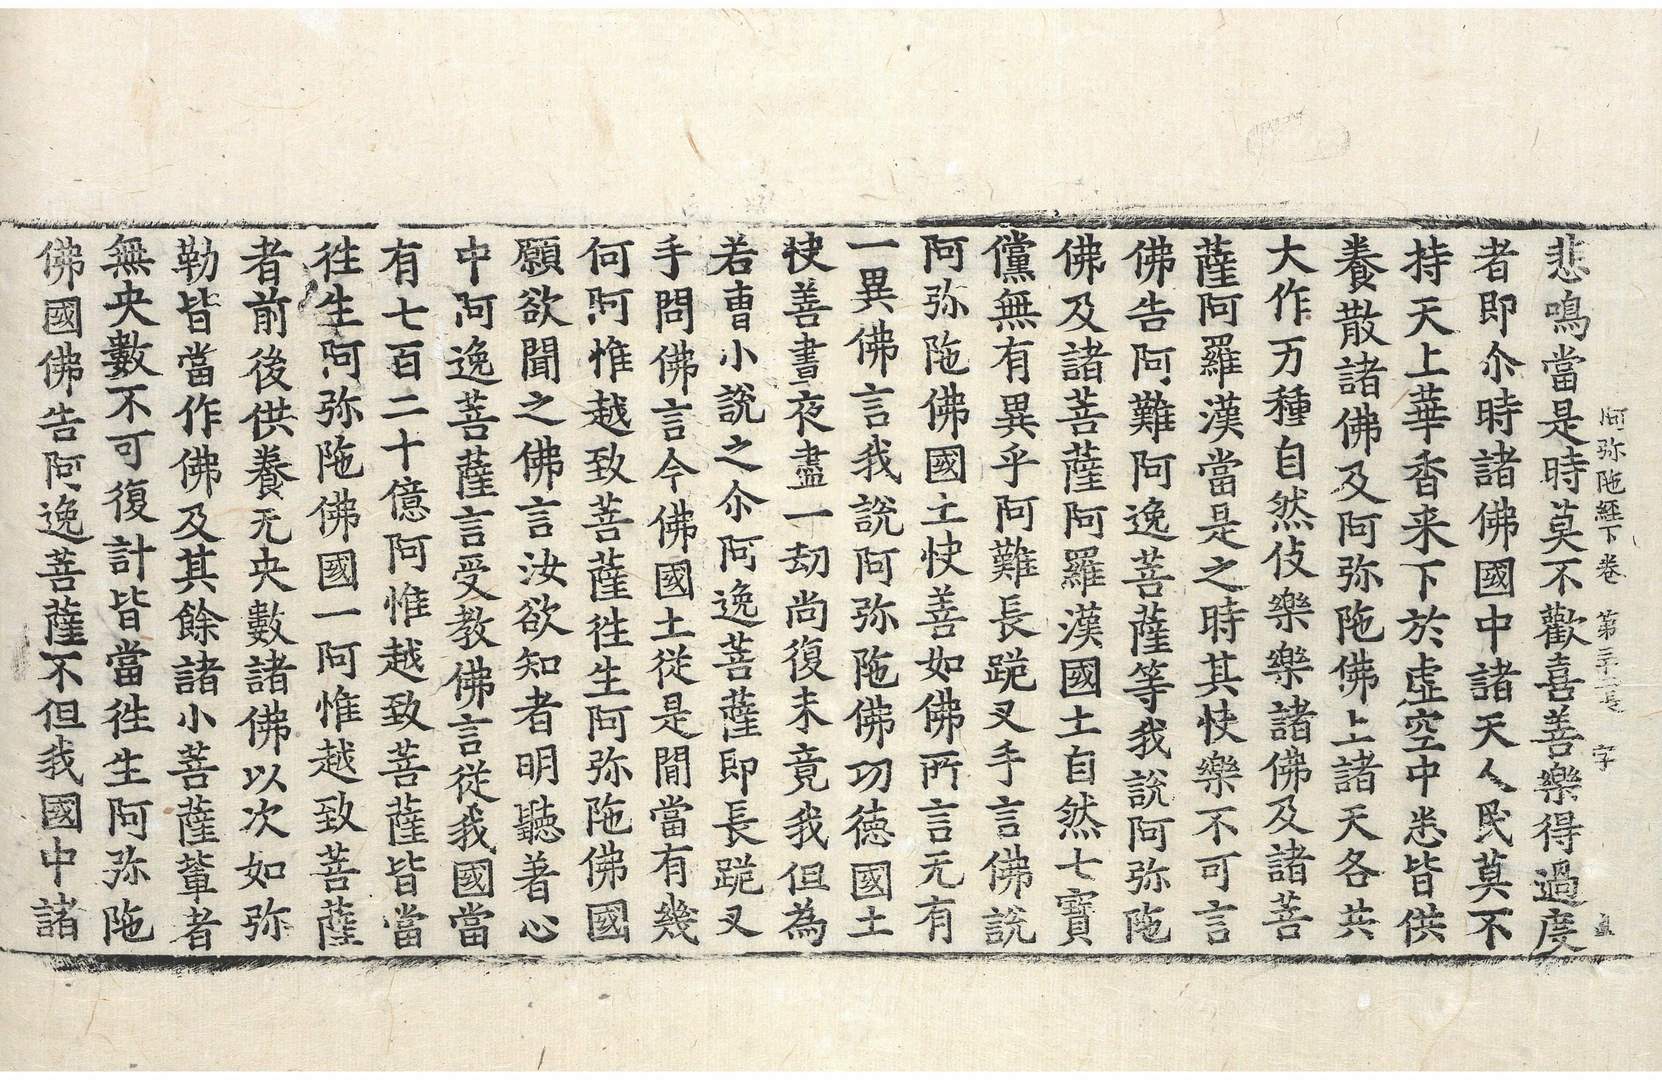 阿弥陁経下卷 第三十二張 字
悲鳴當是時莫不歡喜善樂得過度
者即尒時諸佛國中諸天人民莫不
持天上華香来下於虛空中悉皆供
養散諸佛及阿弥陁佛上諸天各共
大作万種自然伎樂樂諸佛及諸菩
薩阿羅漢當是之時其快樂不可言
佛告阿難阿逸菩薩等我說阿弥陁
佛及諸菩薩阿羅漢國土自然七寶
儻無有異乎阿難長跪叉手言佛說
阿弥陁佛國土快善如佛所言无有
一異佛言我說阿弥陁佛功德國土
快善晝夜盡一劫尚復未竟我但為
若曹小說之尒阿逸菩薩即長跪叉
手問佛言今佛國土從是間當有幾
何阿惟越致菩薩徃生阿弥陁佛國
願欲聞之佛言汝欲知者明聽著心
中阿逸菩薩言受教佛言從我國當
有七百二十億阿惟越致菩薩皆當
徃生阿弥陁佛國一阿惟越致菩薩
者前後供養无央數諸佛以次如弥
勒皆當作佛及其餘諸小菩薩輩者
無央數不可復計皆當徃生阿弥陁
佛國佛告阿逸菩薩不但我國中諸